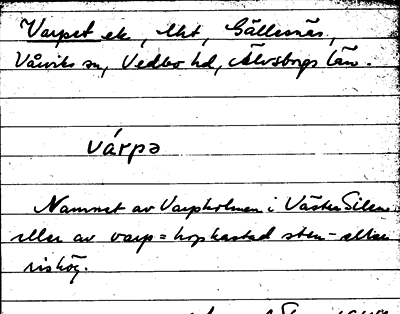 Varpet ek, Ekt, Gällesnäs,
Vårviks sn, Vedbo hd, Älvsborgs län.
várpə
Namnet av Varpholmen i Västra Silen
eller av varp = hopkastad sten- eller
rishög.